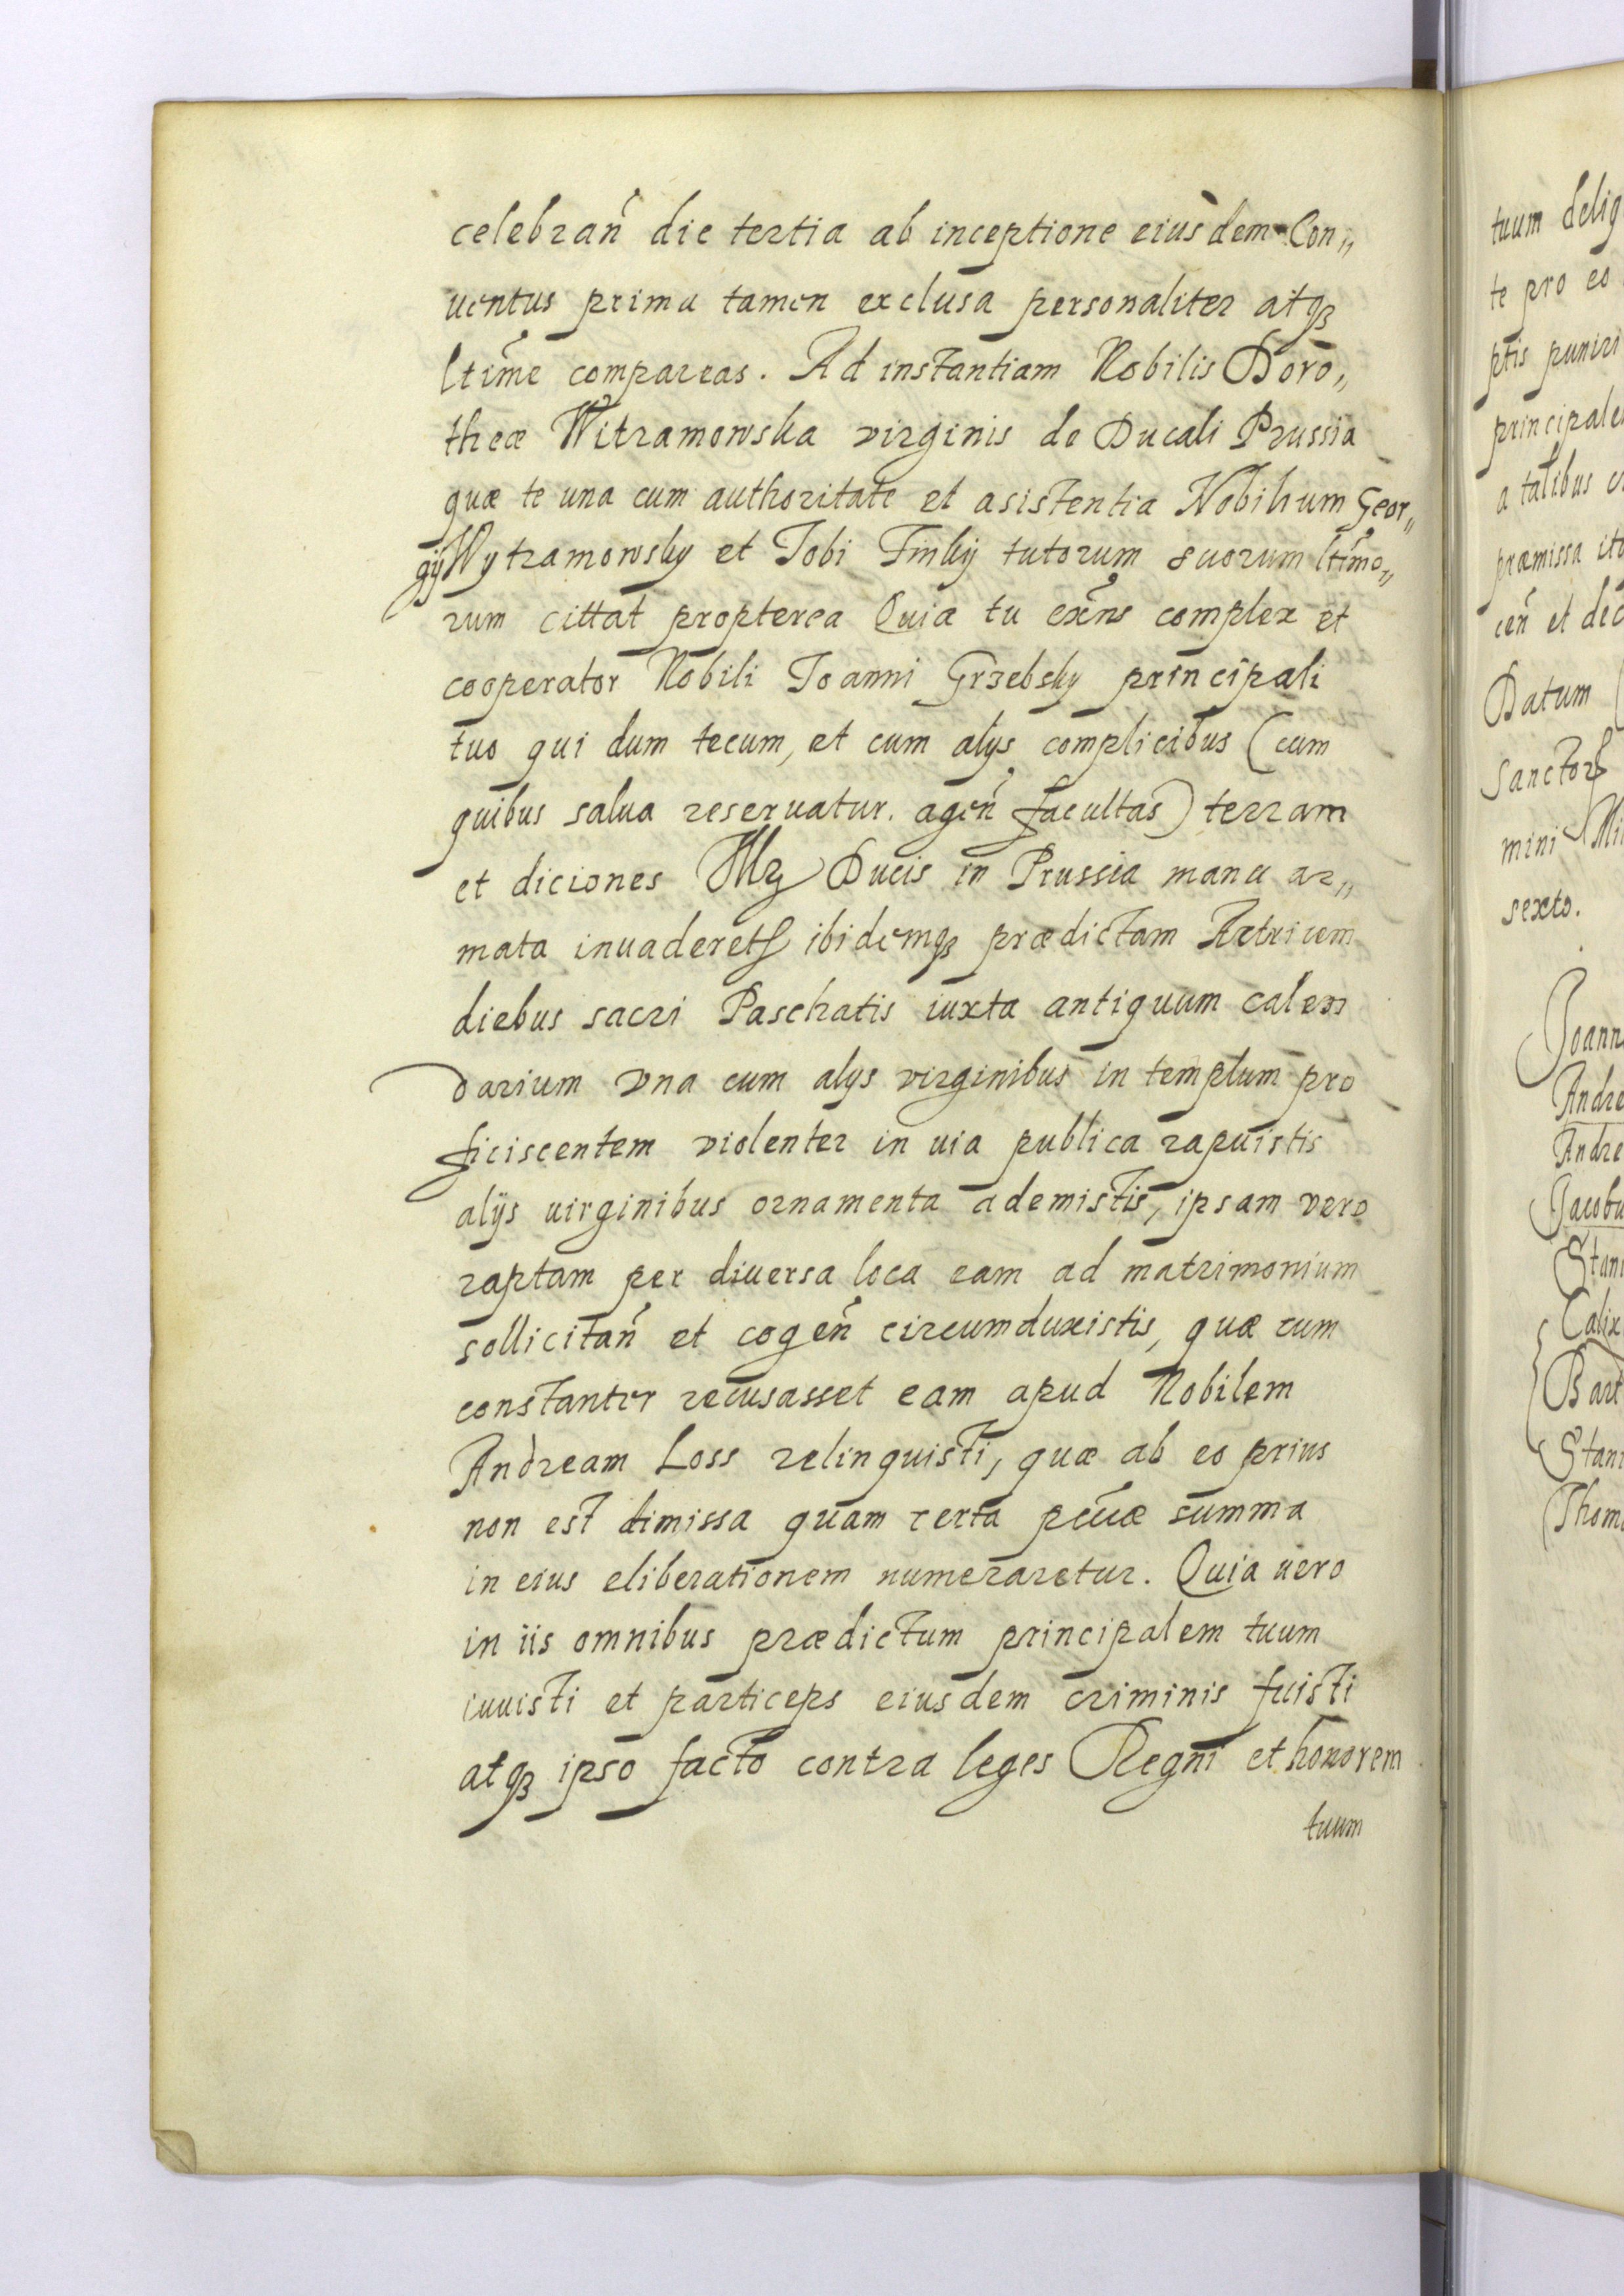 celebrań die tertia ab inceptione eiusdem Con„
uentus prima tamen exclusa personaliter atqꝫ
ltime compareas. Ad instantiam Nobilis Doro„
theæ Witramowska virginis de Ducali Prussia
quæ te una cum authoritate et asistentia Nobilium Geor„
gij Wytramowsky et Tobi Finkij tutorum suorum ltimo„
rum cittat propterea Quia tu exńs complex et
cooperator Nobili Joanni Grzebsky principali
tuo qui dum tecum, et cum alys complicibus (cum
quibus salua reseruatur. ageń facultas) terram
et diciones Ducis in Prussia manu ar„
mata inuaderet ibidemqꝫ prædictam Actricem
diebus sacri Paschatis iuxta antiquum calen
darium vna cum alys virginibus in templum pro
ficiscentem violenter in uia publica rapuistis
alijs uirginibus ornamenta ademistis, ipsam vero
raptam per diuersa loca eam ad matrimonium
sollicitań et cogeń circumduxistis, quæ cum
constanter recusasset eam apud Nobilem
Andream Loss relinquisti, quæ ab eo prius
non est dimissa quam certa pcuæ summa
in eius eliberationem numeraretur. Quia uero
in iis omnibus prædictum principalem tuum
iuuisti et particeps eiusdem criminis fuisti
atqꝫ ipso facto contra leges Regni et honorem
tuum
tuum delig
te pro eo
ptis puniri
principale
a talibus
præmissa ita
ceń et dec
Datum
Sanctor
mini Mi
sexto.
Joann
Andre
Andre
Jacobu
Stani
Calix
Bart
Stani
Thom